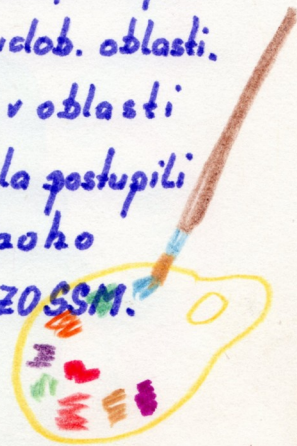 udob. oblasti.
v oblasti
la postupili
ZOSSM.